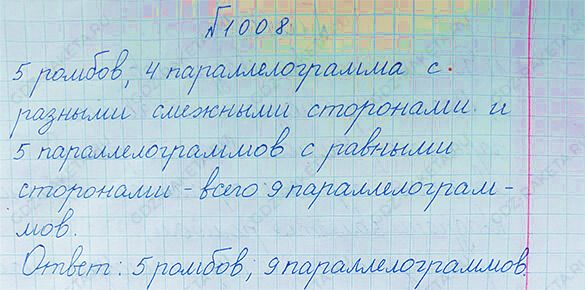 №1008
5 ромбов, 4 параллелограмма с
разными смежными сторонами и
5 параллелограммов с равными
сторонами - всего 9 параллелограм-
мов.
Ответ: 5 ромбов; 9 параллелограммов.